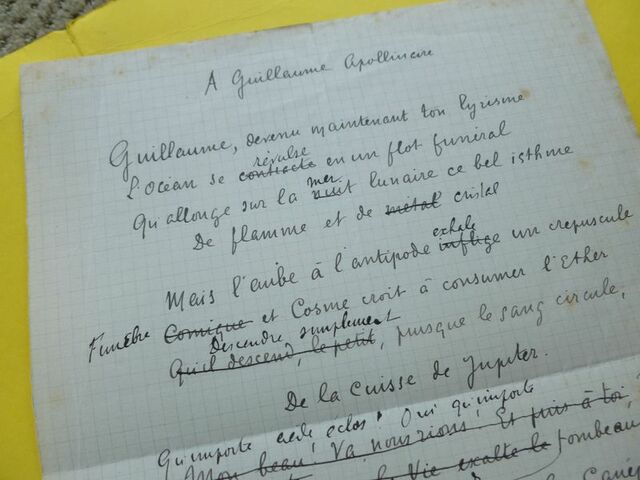 A Guillaume Apollinaire
Guillaume, devenu maintenant ton lyrisme
révulse
L'océan se contracte en un flot funéral
mer
Qu'allonge sur la nuit lunaire ce bel isthme
De flamme et de métal cristal
exhale
Mais l'aube à l'antipode inflige un crépuscule
Funèbre Comique et Cosme croit à consumer l'Ether
Descendre simplement
Qu'il descend, le petit, puisque le sang circule,
De la cuisse de Jupiter.
Qu'importe éclos! Oui qu'importe
Mon beau! Va nous rions! Et puis à toi
la Vie exalte le tombeau